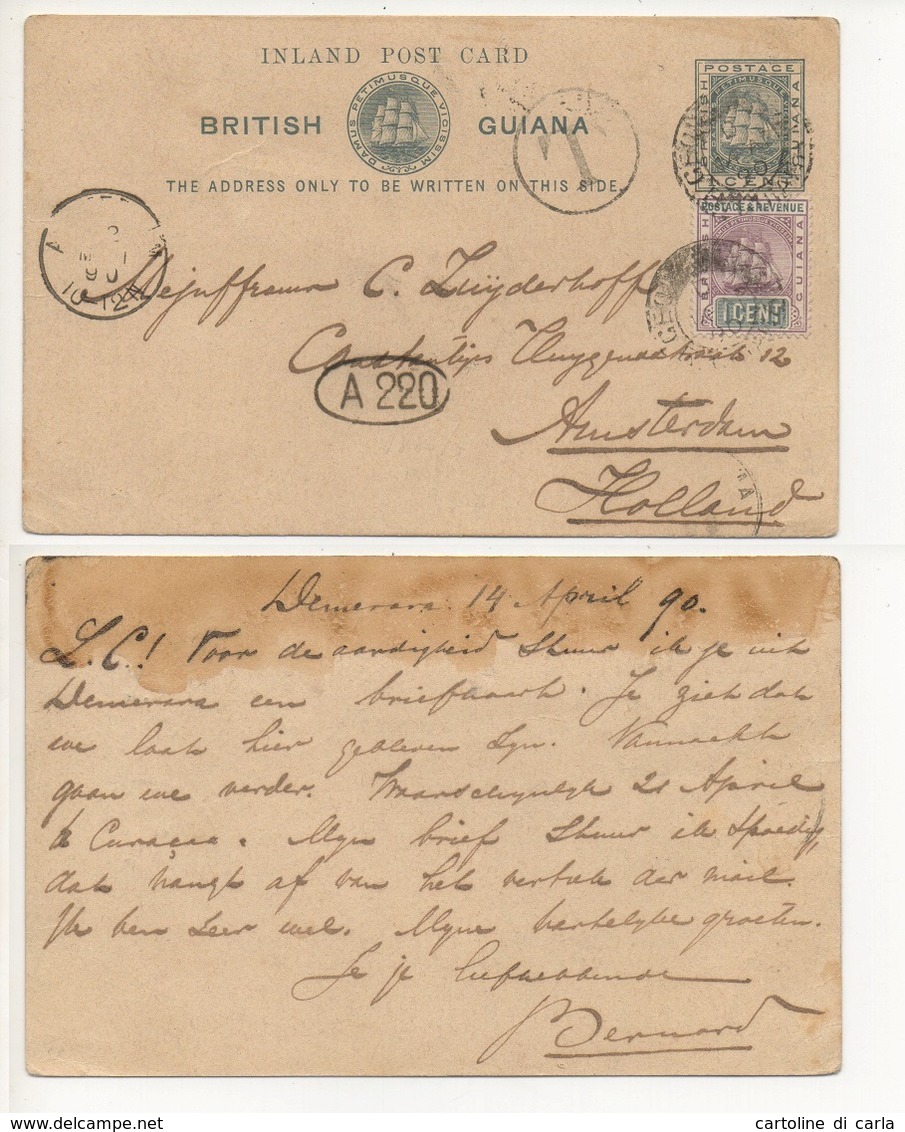 INLAND POST CARD
BRITISH GUIANA
DAMUS PETIMUSQUE VICISSIM
THE ADDRESS ONLY TO BE WRITTEN ON THIS SIDE.
T
POSTAGE
BRITISH GUIANA
1 CENT
POSTAGE & REVENUE
BRITISH GUIANA
1 CENT
90
10-12N
Mejuffrouw C. Zuyderhoff
Constantijn Huygensstraat 12
A 220
Amsterdam
Holland
Demerara 14 April 90.
L.C.! Voor de aardigheid stuur ik je uit
Demerara een briefkaart. Je ziet dat
we laat hier gebleven zyn. Vannacht
gaan we verder. Waarschynlyk 21 April
te Curaçao. Myn brief stuur ik spoedig,
dat hangt af van het vertrek der mail.
Ik ben zeer wel. Myne hartelyke groeten.
je liefhebbende
Bernard
cartoline di carla